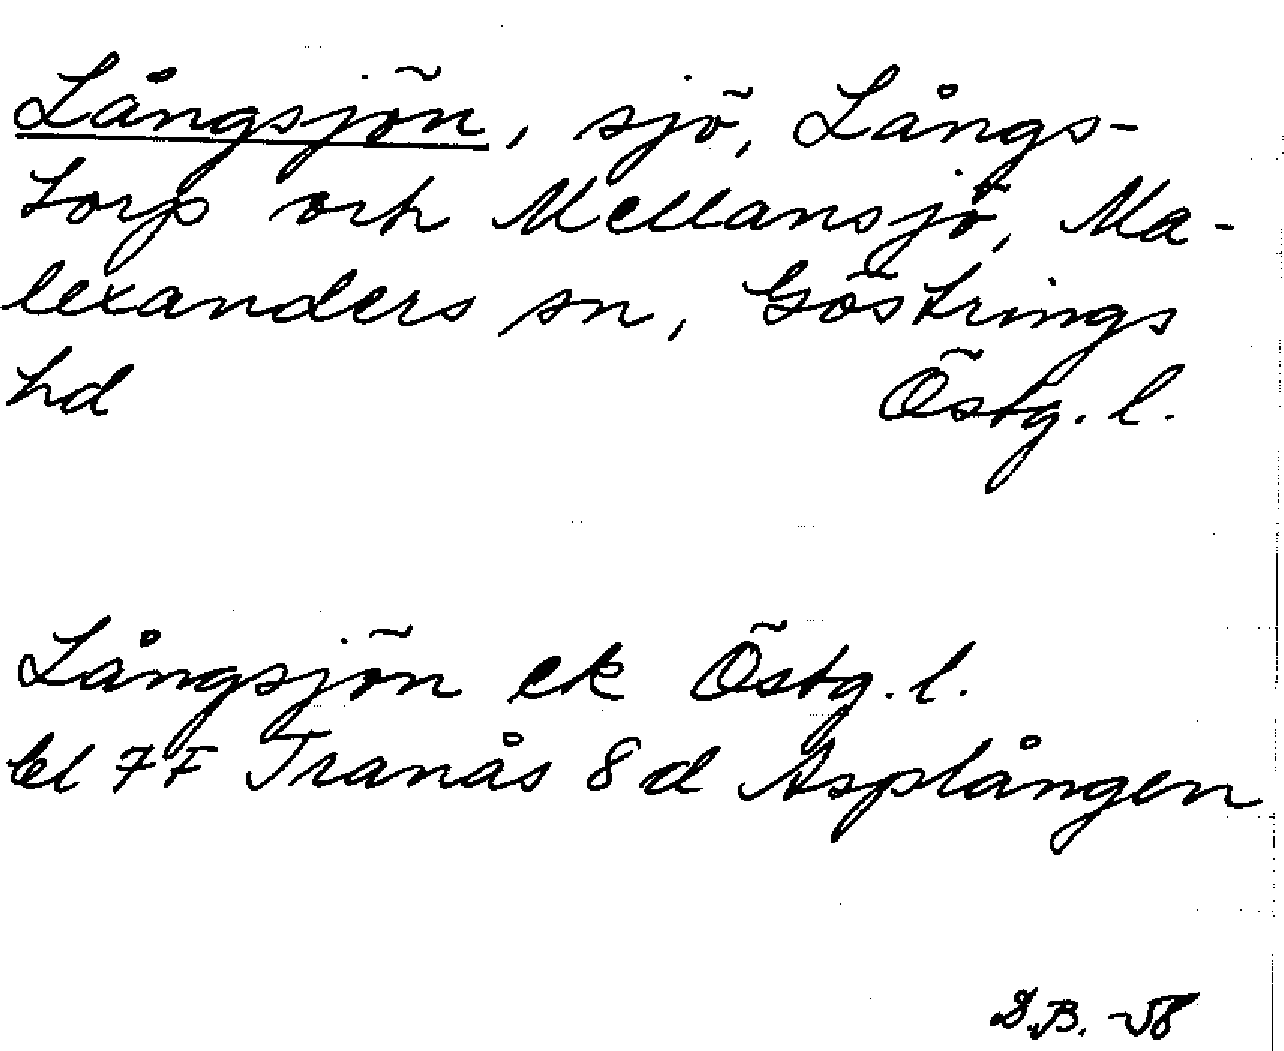 Långsjön, sjö, Långs-
torp och Mellansjö, Ma-
lexanders sn, Göstrings
hd Östg. l.
Långsjön ek Östg. l.
bl 7F Tranås 8 d Asplången
D.B. -58